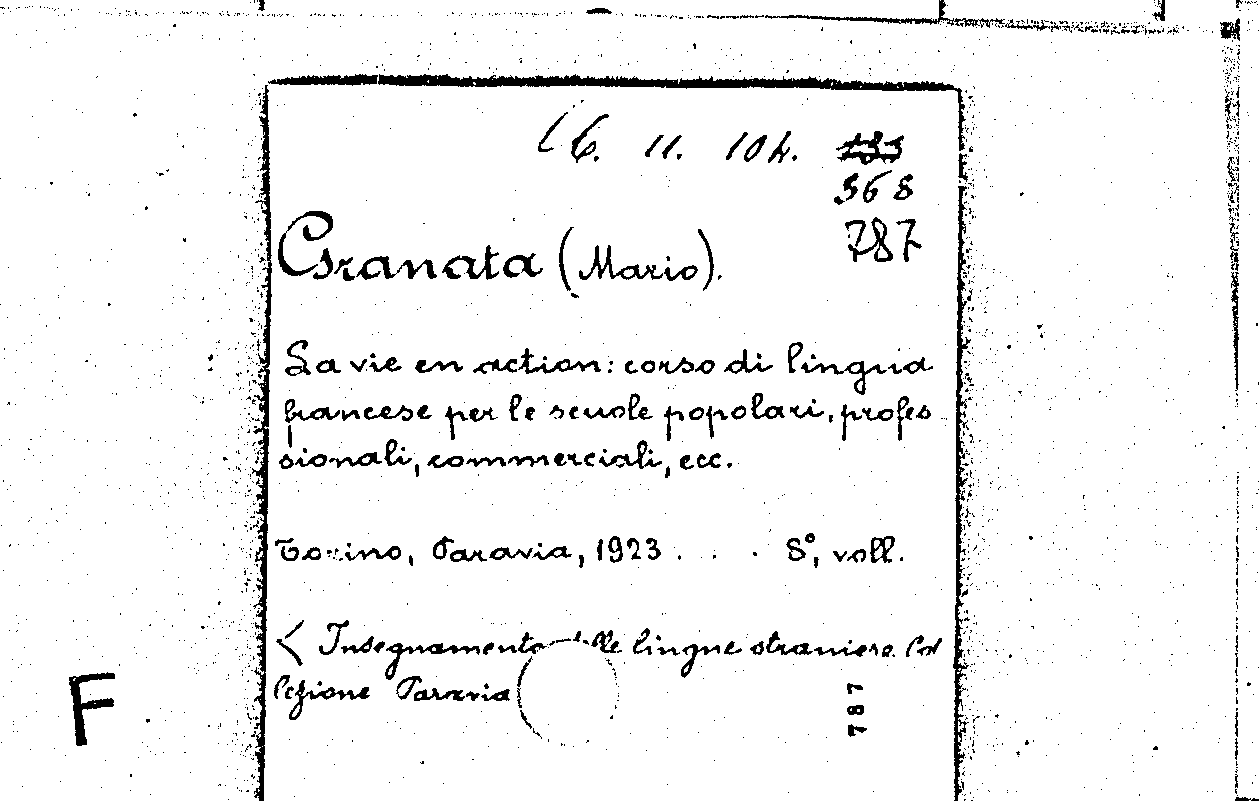 16. 11. 104.
368
787
Granata (Mario).
La vie en action: corso di lingua
francese per le scuole popolari, profes
sionali, commerciali, ecc.
Torino, Paravia, 1923 . . . 8°, voll.
< Insegnamento delle lingue straniere. Col
lezione Paravia
787
F